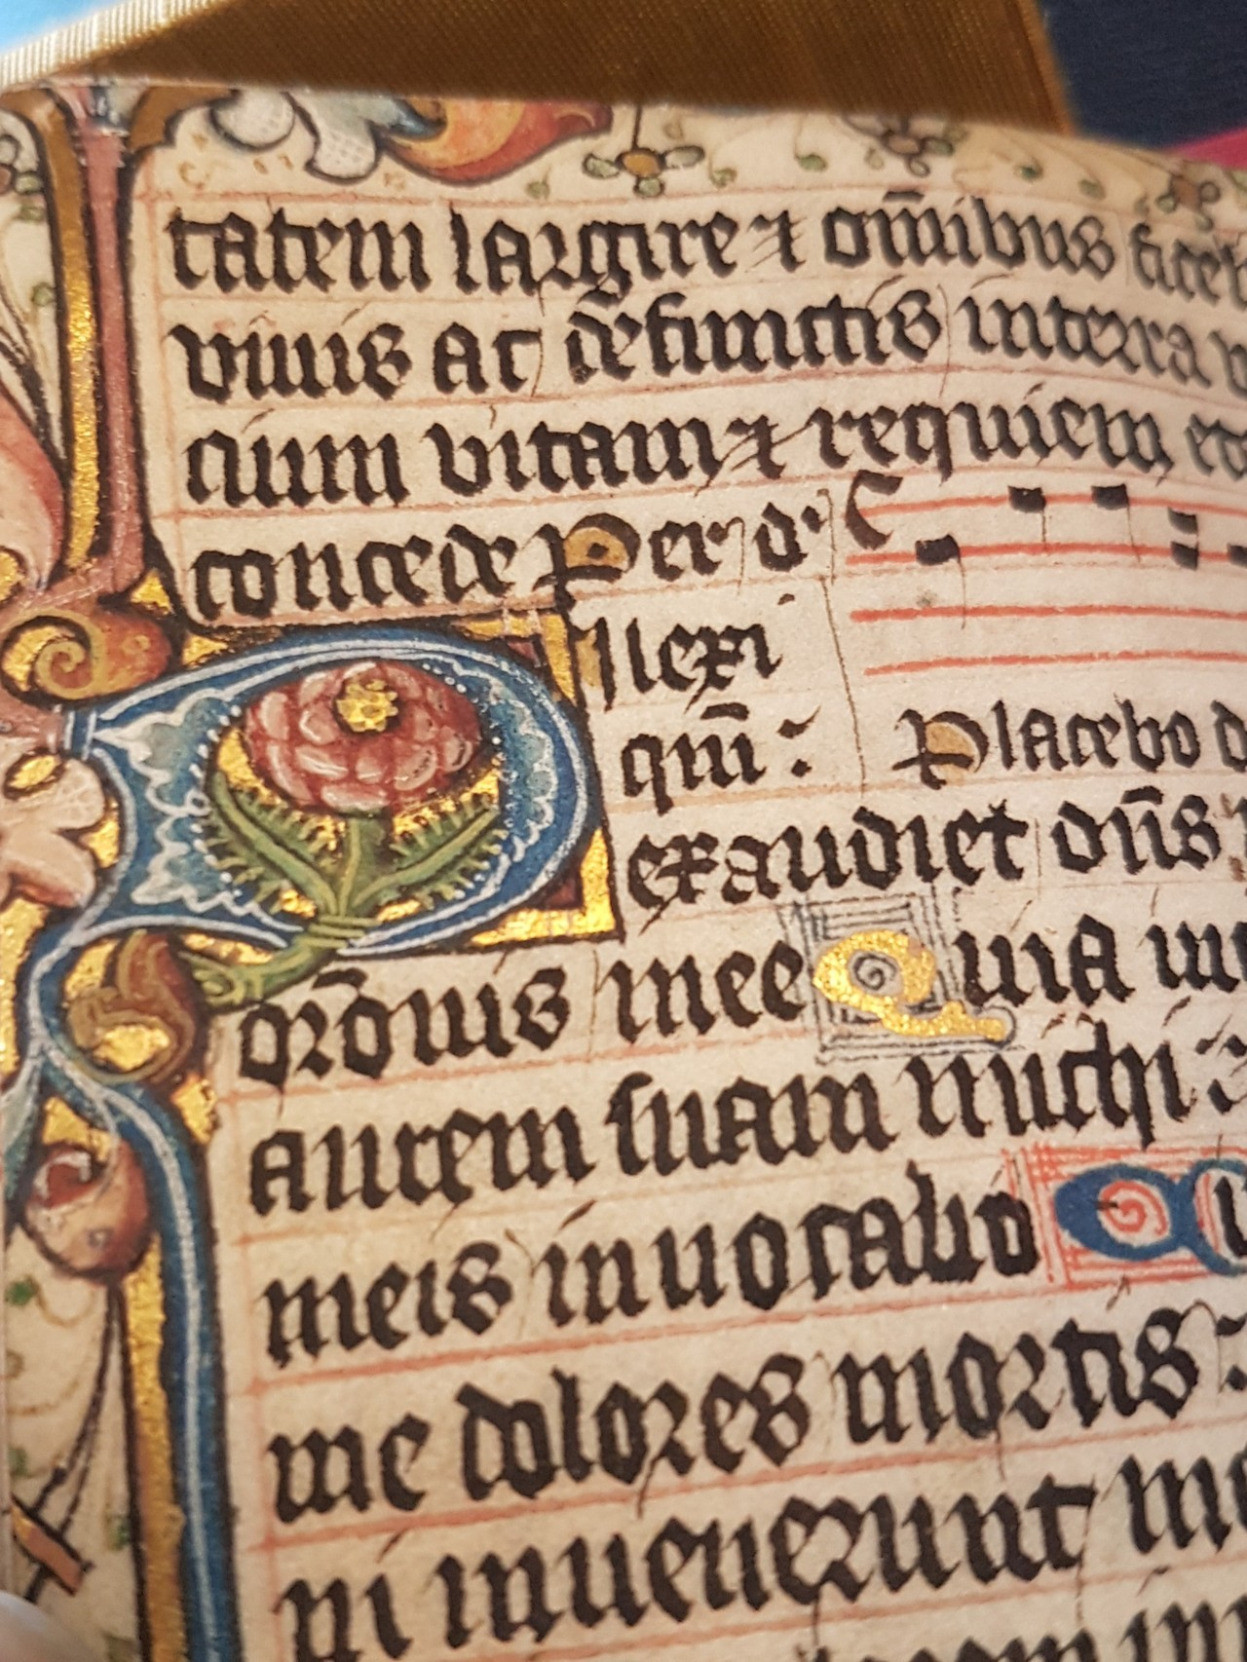 tatem largire ⁊ om̄ibus
viuis ac de̅functis in terra
cium vitam ⁊ requiem
concede Per d'
Ilexi
qm̄ : Placebo
exaudiet dn̄s
or̄onis mee Quia
aurem suam michi :
meis inuocabo
me dolores mortis :
ni inuenerunt